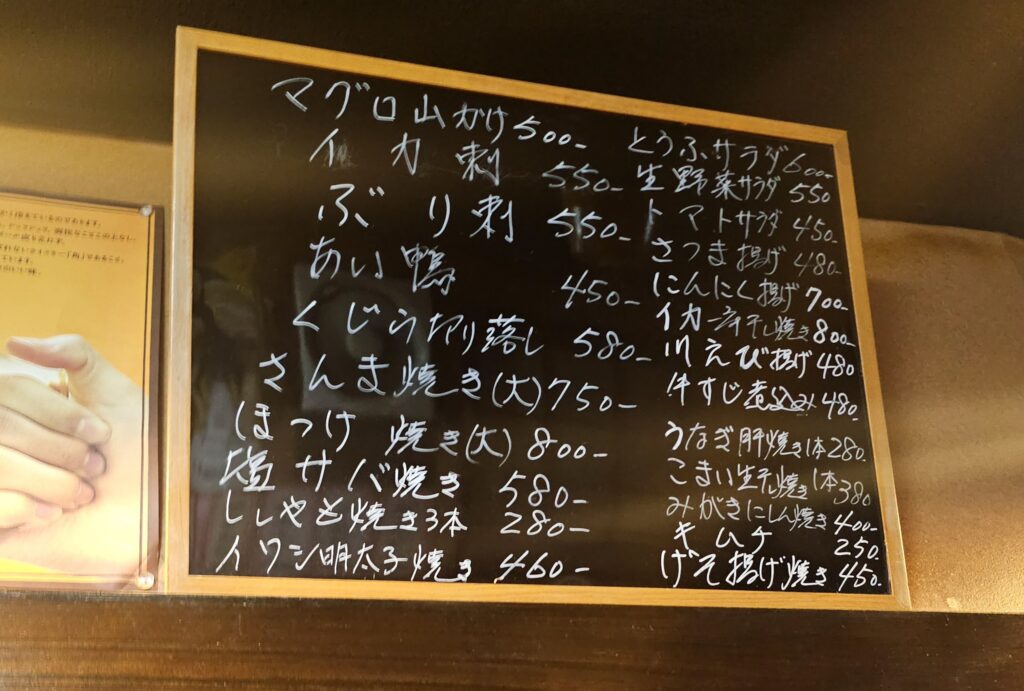 マグロ山かけ 500-
イカ刺 550-
ぶり刺 550-
あい鴨 450-
くじら切り落し 580-
さんま焼き(大) 750-
ほっけ焼き(大) 800-
塩サバ焼き 580-
ししゃも焼き3本 280-
イワシ明太子焼き 460-
とうふサラダ 600-
生野菜サラダ 550
トマトサラダ 450-
さつま揚げ 480-
にんにく揚げ 700-
イカ一夜干し焼き 800-
川えび揚げ 480
牛すじ煮込み 480-
うなぎ肝焼き1本 280-
こまい生干し焼き1本 380
みがきにしん焼き 400-
キムチ 250-
げそ揚げ焼き 450-